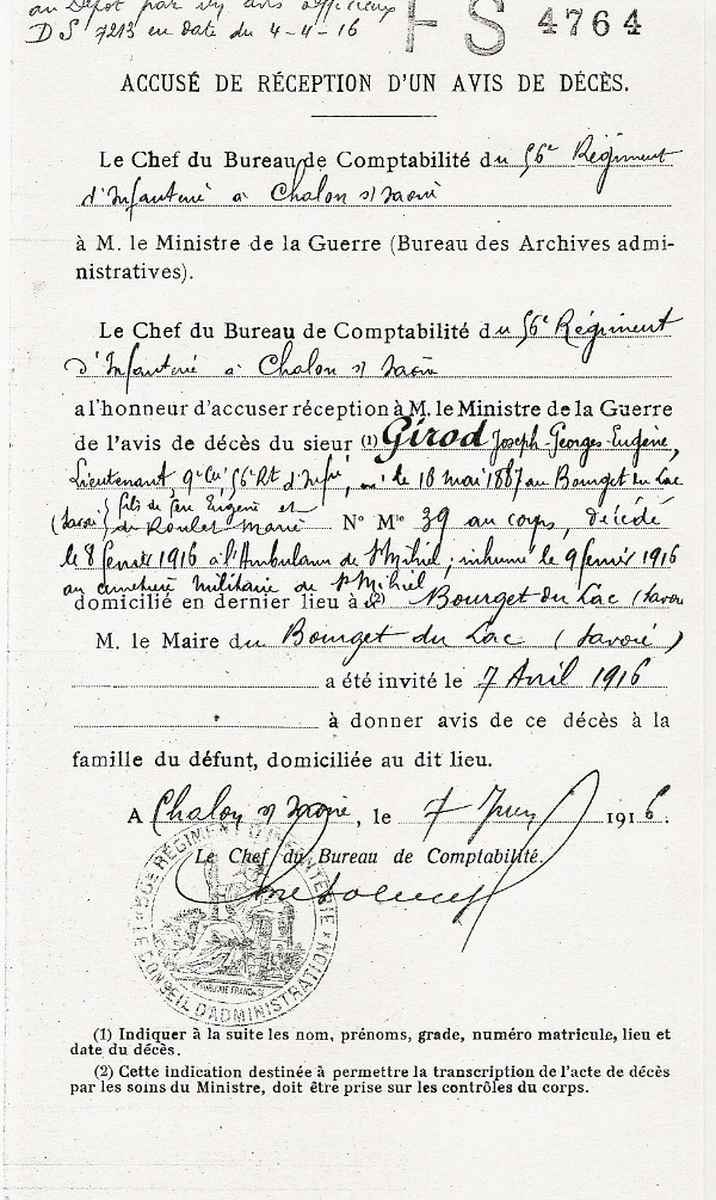 au Dépôt par un avis officieux
DS 7213 en date du 4-4-16
FS 4764
ACCUSÉ DE RÉCEPTION D'UN AVIS DE DÉCÈS.
Le Chef du Bureau de Comptabilité du 56e Régiment
d'Infanterie à Chalon s/ Saône
à M. le Ministre de la Guerre (Bureau des Archives admi-
nistratives).
Le Chef du Bureau de Comptabilité du 56e Régiment
d'Infanterie à Chalon s/ Saône
a l'honneur d'accuser réception à M. le Ministre de la Guerre
de l'avis de décès du sieur (1) Girod Joseph-Georges-Eugène,
Lieutenant, 9e Cie, 56e Rt d'Infie, né le 18 mai 1887 au Bourget du Lac
(Savoie) fils de feu Eugène et
de Roulet Marie No Mle 39 au corps, décédé
le 8 février 1916 à l'Ambulance de St Mihiel; inhumé le 9 février 1916
au cimetière militaire de St Mihiel
domicilié en dernier lieu à (2) Bourget du Lac (Savoie
M. le Maire du Bourget du Lac (Savoie)
a été invité le 7 Avril 1916
à donner avis de ce décès à la
famille du défunt, domiciliée au dit lieu.
A Chalon s/ Saône, le 7 Juin 1916.
Le Chef du Bureau de Comptabilité.
56E RÉGIMENT D'INFANTERIE
LE CONSEIL D'ADMINISTRATION
RÉPUBLIQUE FRANÇAISE
(1) Indiquer à la suite les nom, prénoms, grade, numéro matricule, lieu et
date du décès.
(2) Cette indication destinée à permettre la transcription de l'acte de décès
par les soins du Ministre, doit être prise sur les contrôles du corps.